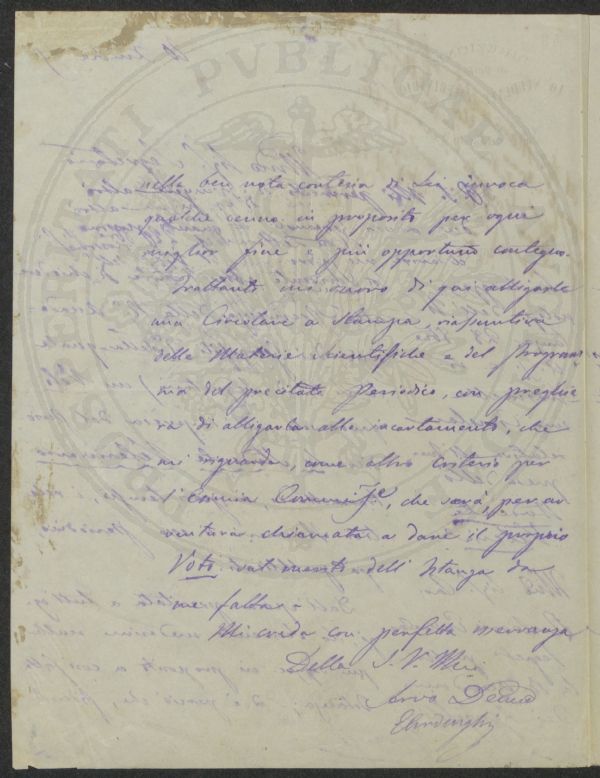 nella ben nota cortesia di Lei invoca
qualche cenno in proposito per ogni
miglior fine e più opportuno contegno.
Frattanto mi onoro di qui alligarle
una Circolare a Stampa, riassuntiva
delle Materie scientifiche e del Program-
ma del precitato Periodico, con preghie
di alligarla allo incartamento, che
mi riguarda come altro criterio per
Commissne, che sarà, per av
ventura chiamata a dare il proprio
Voto sui meriti dell' Istanza da
me fatta.
Mi creda con perfetta osservanza
Della S. V. Ill
PVBLICAE